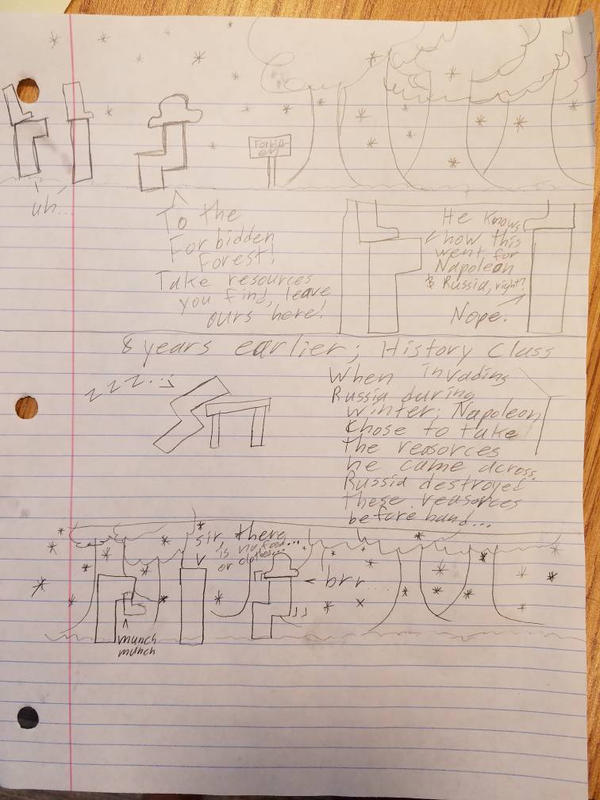 Forbid
en
uh...
To the
Forbidden
Forest!
Take resources
you find, leave
ours here!
He knows
how this
went for
Napoleon
& Russia, right?
Nope.
8 years earlier; History Class
zzz...
When invading
Russia during
winter, Napoleon
chose to take
the reasorces
he came across.
Russia destroyed
these reasorces
before hand...
sir, there
is no food...
or clothes...
brr...
munch
munch